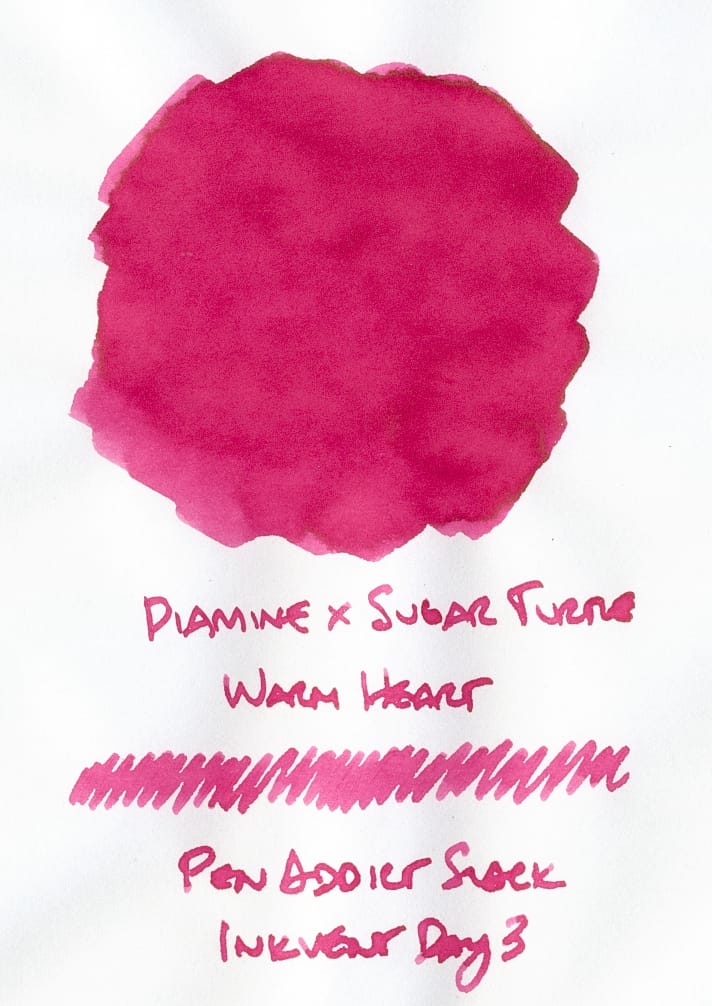 Diamine x Sugar Turtle
Warm Heart
Pen Addict Slack
Inkvent Day 3